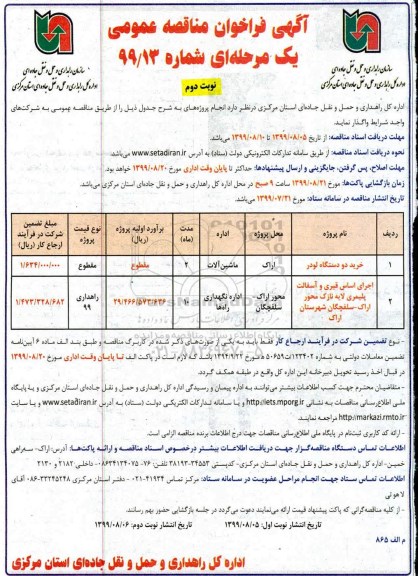 آگهی فراخوان مناقصه عمومی
یک مرحله‌ای شماره ۹۹/۱۳
نوبت دوم
سازمان راهداری و حمل و نقل جاده‌ای
اداره کل راهداری و حمل و نقل جاده‌ای استان مرکزی
سازمان راهداری و حمل و نقل جاده‌ای
اداره کل راهداری و حمل و نقل جاده‌ای استان مرکزی
اداره کل راهداری و حمل و نقل جاده‌ای استان مرکزی درنظر دارد انجام پروژه‌های به شرح جدول ذیل را از طریق مناقصه عمومی به شرکت‌های
واجد شرایط واگذار نماید.
مهلت دریافت اسناد مناقصه: از تاریخ ۱۳۹۹/۰۸/۰۵ تا ۱۳۹۹/۰۸/۱۰ می‌باشد.
نحوه دریافت اسناد مناقصه: از طریق سامانه تدارکات الکترونیکی دولت (ستاد) به آدرس www.setadiran.ir می‌باشد.
مهلت اصلاح، پس گرفتن، جایگزینی و ارسال پیشنهادها: حداکثر تا پایان وقت اداری مورخ ۱۳۹۹/۰۸/۲۰ خواهد بود.
زمان بازگشایی پاکت‌ها: مورخ ۱۳۹۹/۰۸/۲۱ ساعت ۹ صبح در محل اداره کل راهداری و حمل و نقل جاده‌ای استان مرکزی می‌باشد.
تاریخ انتشار مناقصه در سامانه ستاد: مورخ ۱۳۹۹/۰۷/۳۱
ردیف | نام پروژه | محل پروژه | اداره | مدت (ماه) | برآورد اولیه پروژه (ریال) | نوع قیمت پروژه | مبلغ تضمین شرکت در فرآیند ارجاع کار (ریال)
۱ | خرید دو دستگاه لودر | اراک | ماشین آلات | ۲ | مقطوع | مقطوع | ۱/۶۳۴/۰۰۰/۰۰۰
۲ | اجرای اساس قیری و آسفالت پلیمری لایه نازک محور اراک-سلفچگان شهرستان اراک | محور اراک-سلفچگان | اداره نگهداری راه‌ها | ۱۰ | ۲۹/۴۶۶/۵۷۳/۶۳۶ | راهداری ۹۹ | ۱/۴۷۳/۳۲۸/۶۸۲
- نوع تضمین شرکت در فرآیند ارجاع کار فقط باید به یکی از صورت‌های ذکر شده در کاربرگ مناقصه و طبق بند الف ماده ۶ آیین‌نامه
تضمین معاملات دولتی به شماره ۱۲۳۴۰۲/ت۵۰۶۵۹هـ مورخ ۱۳۹۴/۹/۲۲ باشد که لازم است در پاکت الف تا پایان وقت اداری مورخ ۱۳۹۹/۰۸/۲۰
در قبال اخذ رسید تحویل دبیرخانه این اداره کل واقع در طبقه همکف گردد.
- متقاضیان محترم جهت کسب اطلاعات بیشتر می‌توانند به اداره پیمان و رسیدگی اداره کل راهداری و حمل و نقل جاده‌ای استان مرکزی و یا پایگاه
ملی اطلاع‌رسانی مناقصات به نشانی http://iets.mporg.ir و یا سامانه تدارکات الکترونیکی دولت (ستاد) به آدرس www.setadiran.ir و یا سایت
http://markazi.rmto.ir مراجعه نمایند.
- ارائه کد کاربری ثبت‌نام در پایگاه ملی اطلاع‌رسانی مناقصات جهت درج اطلاعات برنده مناقصه الزامی است.
اطلاعات تماس دستگاه مناقصه‌گزار جهت دریافت اطلاعات بیشتر درخصوص اسناد مناقصه و ارائه پاکت‌ها: آدرس: اراک-سه‌راهی
خمین-اداره کل راهداری و حمل و نقل جاده‌ای استان مرکزی- کدپستی ۳۴۵۵۳-۳۸۱۹۳ تلفن: ۷۶-۰۸۶۳۴۱۳۴۰۷۵ داخلی: ۲۱۸۲ و ۲۱۳۰
اطلاعات تماس ستاد جهت انجام مراحل عضویت در سامانه ستاد: مرکز تماس ۴۱۹۳۴-۰۲۱ دفتر ثبت‌نام ۳۳۲۴۵۲۴۸-۰۸۶ آقای
لاهوتی
- از کلیه مناقصه‌گرانی که پاکت پیشنهاد قیمت ارائه می‌نمایند دعوت می‌گردد در جلسه بازگشایی حضور بهم رسانند.
تاریخ انتشار نوبت اول: ۱۳۹۹/۰۸/۰۵ تاریخ انتشار نوبت دوم: ۱۳۹۹/۰۸/۰۶
م الف ۸۶۵
اداره کل راهداری و حمل و نقل جاده‌ای استان مرکزی